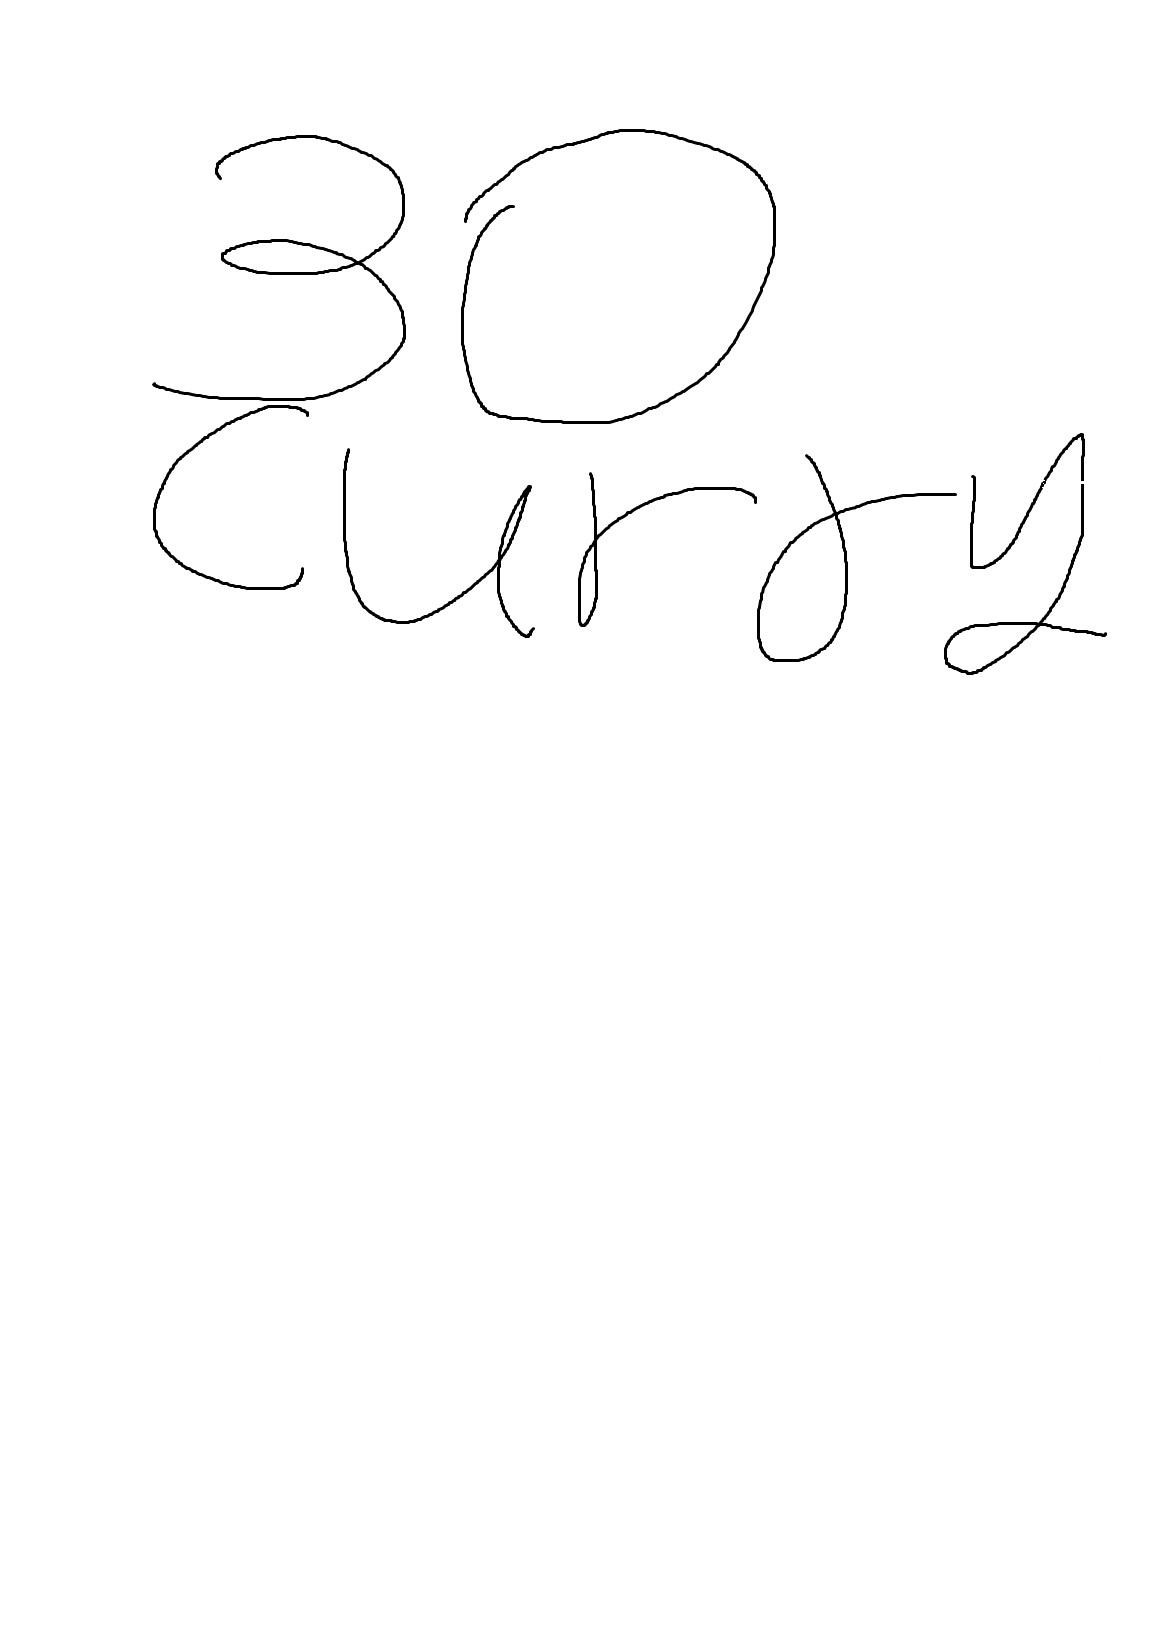 30
Curry